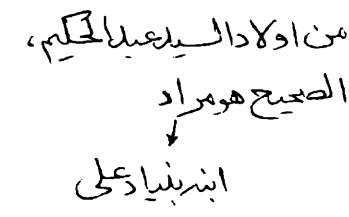 من اولاد السيد عبد الحكيم،
الصحيح هو مراد
ابنه بنياد علی